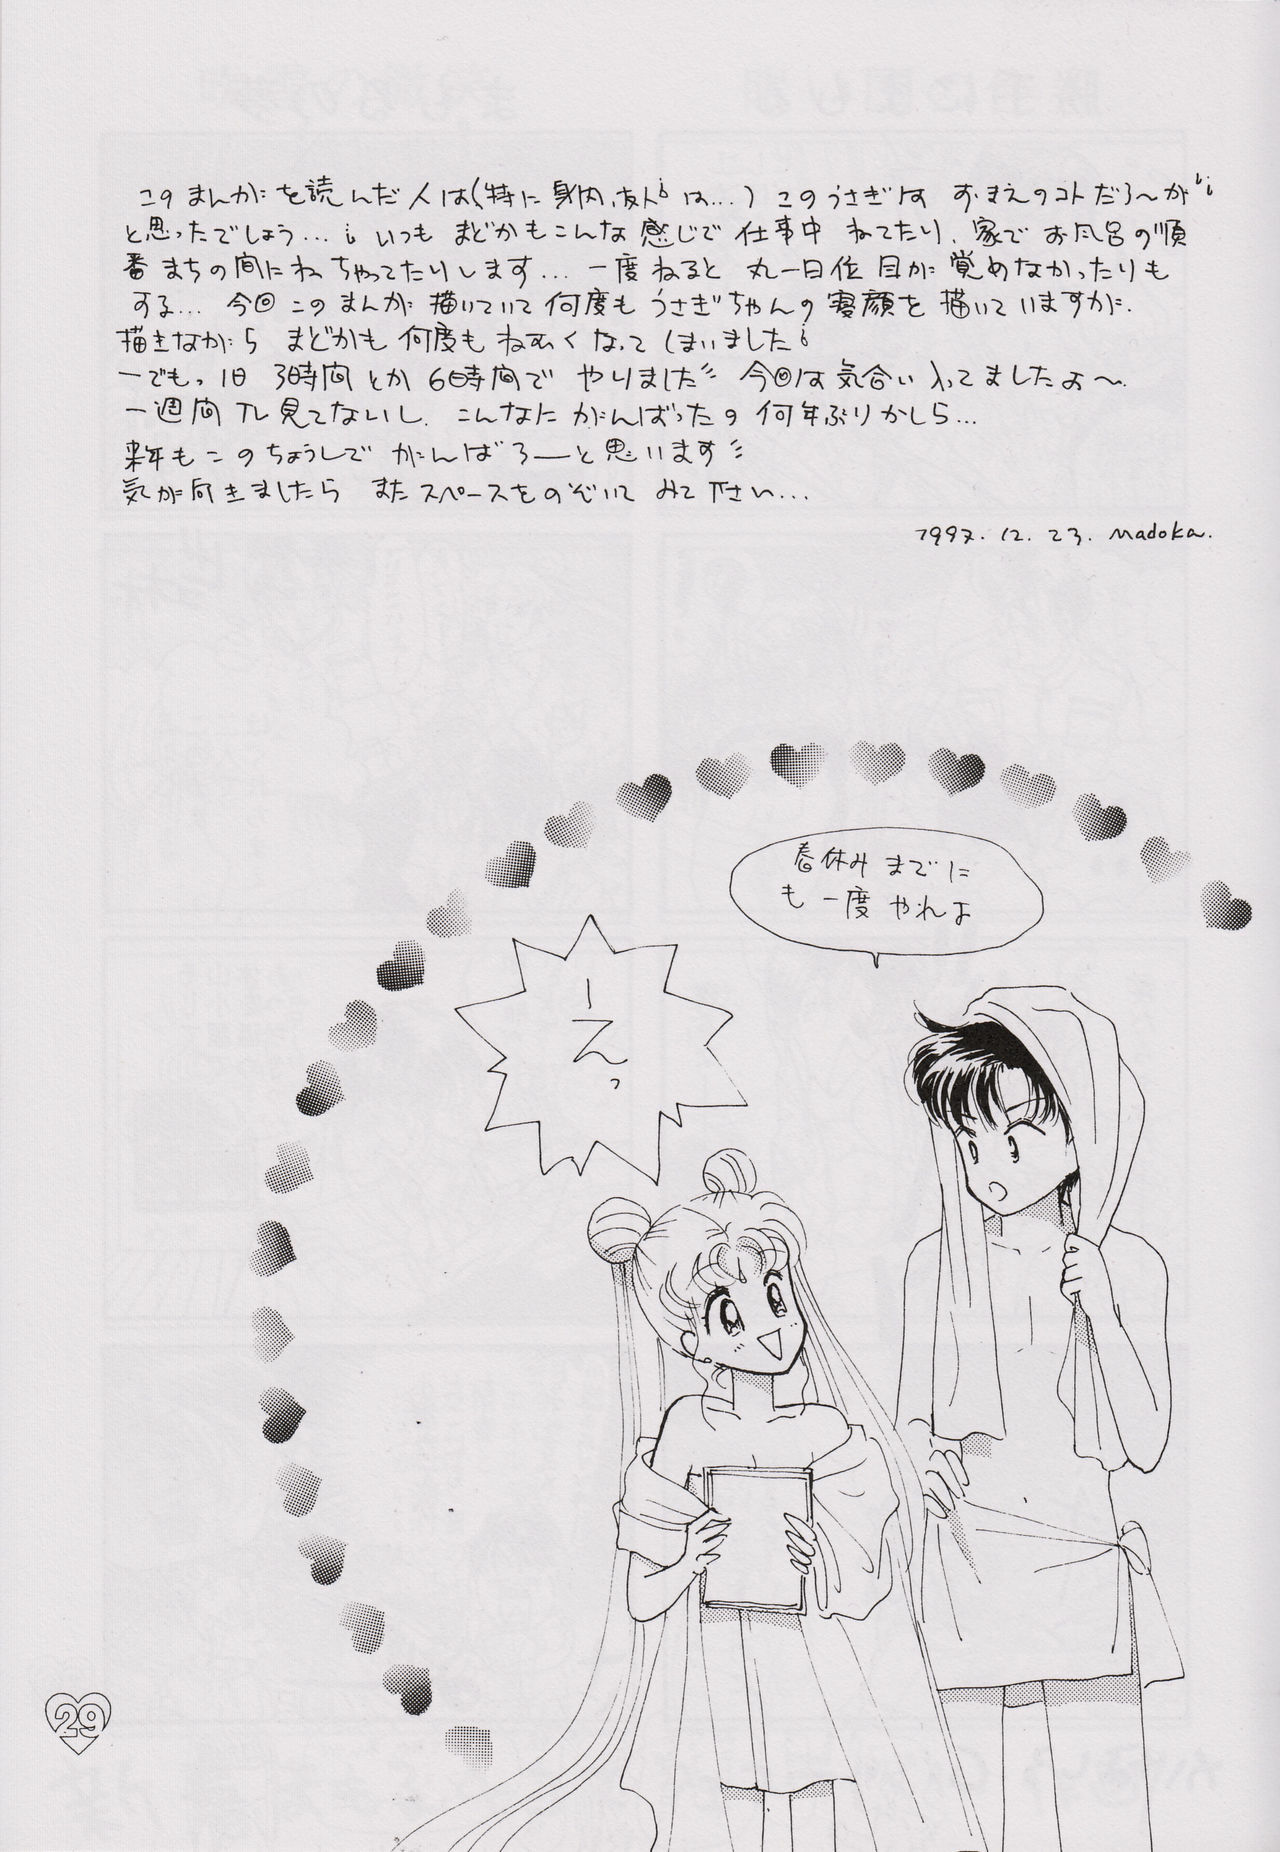 このまんがを読んだ人は(特に身内、友人は…)このうさぎは おまえのコトだろ〜が
と思ったでしょう… いつも まどかもこんな感じで仕事中 ねてたり、家でお風呂の順
番まちの間にねちゃってたりします… 一度ねると 丸一日位目が覚めなかったりも
する… 今回このまんが描いていて何度もうさぎちゃんの寝顔を描いていますが、
描きながら まどかも何度もねむくなってしまいました
―でもっ 1日 3時間とか 6時間で やりました 今回は気合い入ってましたよ〜
一週間TV見てないし、こんなに がんばったの何年ぶりかしら…
来年もこのちょうしで がんばろーと思います
気が向きましたら またスペースをのぞいて みて下さい…
1997. 12. 23. Madoka.
春休みまでに
も一度やれよ
えーっ
29